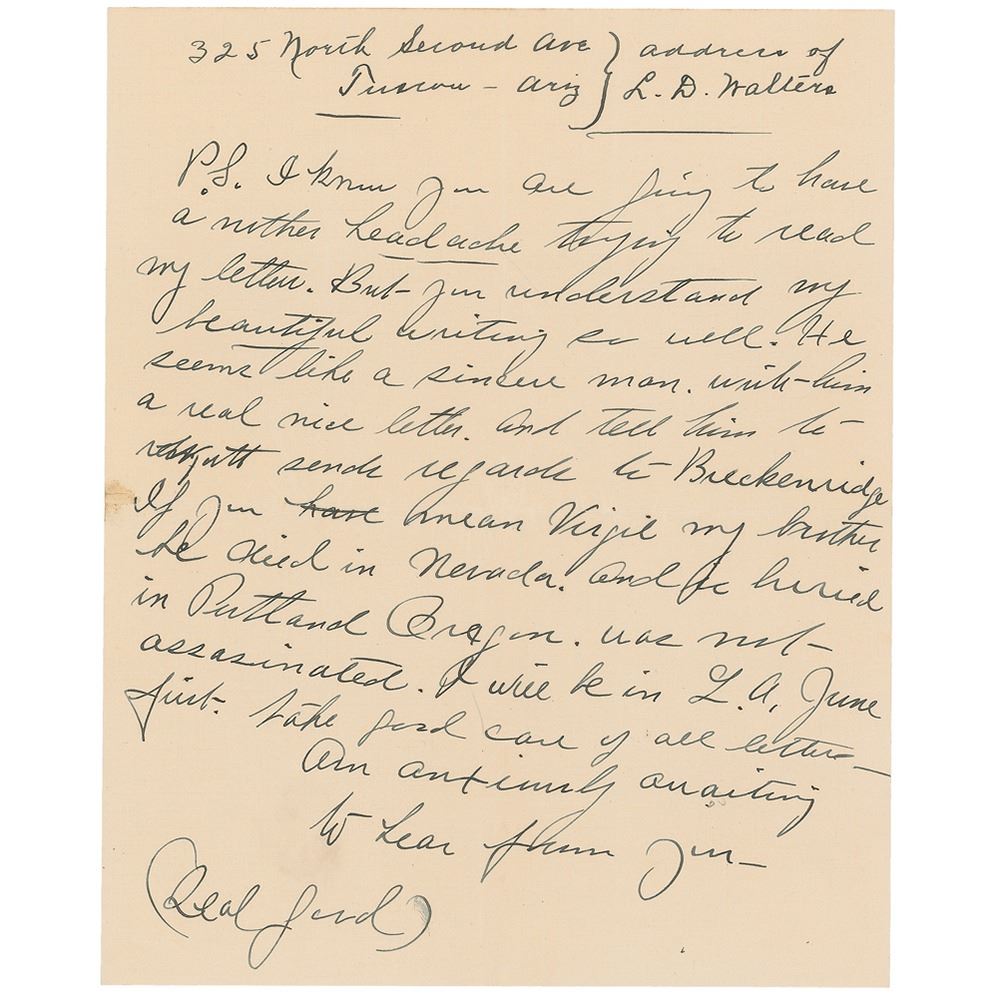 325 North Second Ave } address of
Tuscon - Ariz } L. D. Walters
P.S. I know you are going to have
a nother headache trying to read
my letter. But you understand my
beautiful writing so well. He
seems like a sincere man. write him
a real nice letter. and tell him to
send regards to Breckenridge
If you have mean Virgil my brother
he died in Nevada. and is buried
in Portland Oregon. was not
assasinated. I will be in L.A. June
first. take good care of all letters—
Am anxiously awaiting
to hear from you—
(Real Good)